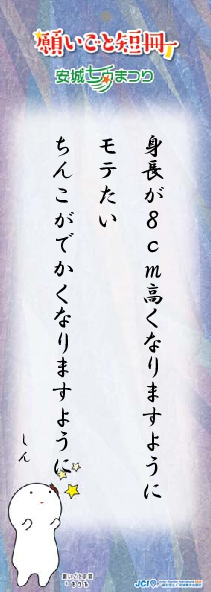 願いごと短冊
安城七夕まつり
身長が8cm高くなりますように
モテたい
ちんこがでかくなりますように
しん
願いごと短冊
JCI